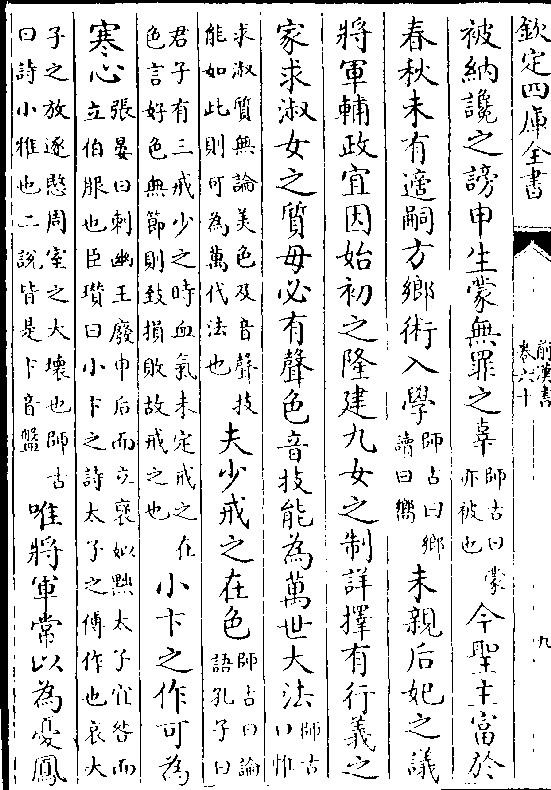 欽定四庫全書
前漢書
卷六十
九
被納讒之謗申生蒙無罪之辜師古曰蒙亦被也今聖主富於
春秋未有適嗣方鄉術入學師古曰鄉讀曰嚮未親后妃之議
將軍輔政宜因始初之隆建九女之制詳擇有行義之
家求淑女之質毋必有聲色音技能為萬世大法師古曰惟
求淑質無論美色及音聲技能如此則可為萬代法也夫少戒之在色師古曰論語孔子曰
君子有三戒少之時血氣未定戒之在色言好色無節則致損敗故戒之也小卞之作可為
寒心張晏曰刺幽王廢申后而立褒姒黜太子宜咎而立伯服也臣瓚曰小卞之詩太子之傅作也哀太
子之放逐愍周室之大壞也師古曰詩小雅也二說皆是卞音盤唯將軍常以為憂鳳